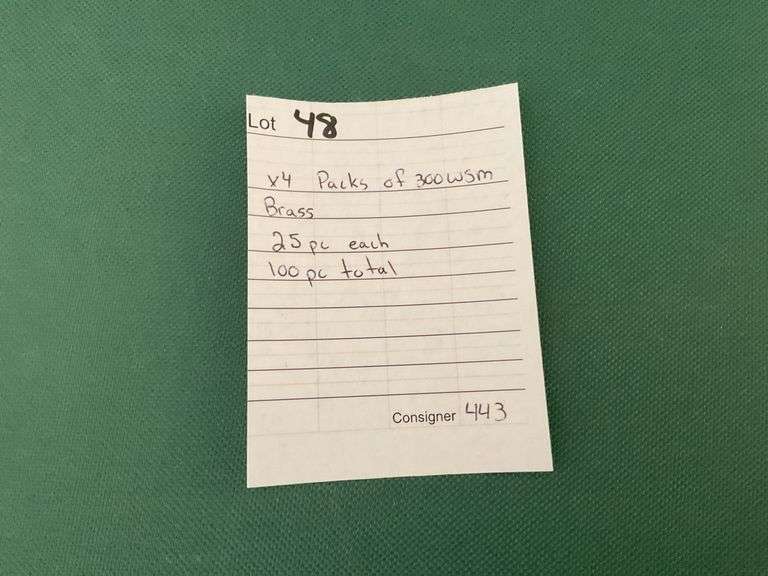 Lot 48
x4 Packs of 300wsm
Brass
25 pc each
100 pc total
Consigner 443